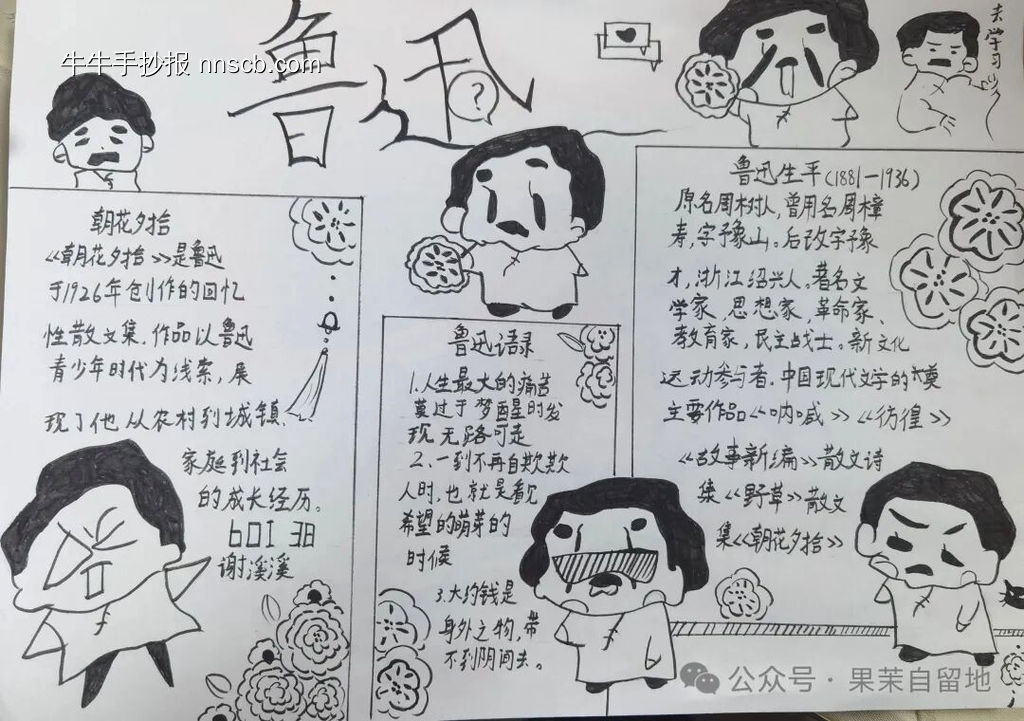 牛牛手抄报 nnscb.com
鲁迅
?
去学习
朝花夕拾
《朝花夕拾》是鲁迅
于1926年创作的回忆
性散文集.作品以鲁迅
青少年时代为线索,展
现了他从农村到城镇.
家庭到社会
的成长经历。
601班
谢溪溪
鲁迅语录
1.人生最大的痛苦
莫过于梦醒时的发
现无路可走
2.一到不再自欺欺
人时,也就是看见
希望的萌芽的
时候
3.大约钱是
身外之物,带
不到阴间去。
鲁迅生平(1881—1936)
原名周树人,曾用名周樟
寿,字豫山。后改字豫
才,浙江绍兴人。著名文
学家、思想家,革命家、
教育家,民主战士。新文化
运动参与者.中国现代文学的奠
主要作品《呐喊》《彷徨》
《故事新编》散文诗
集《野草》散文
集《朝花夕拾》
公众号·果茉自留地